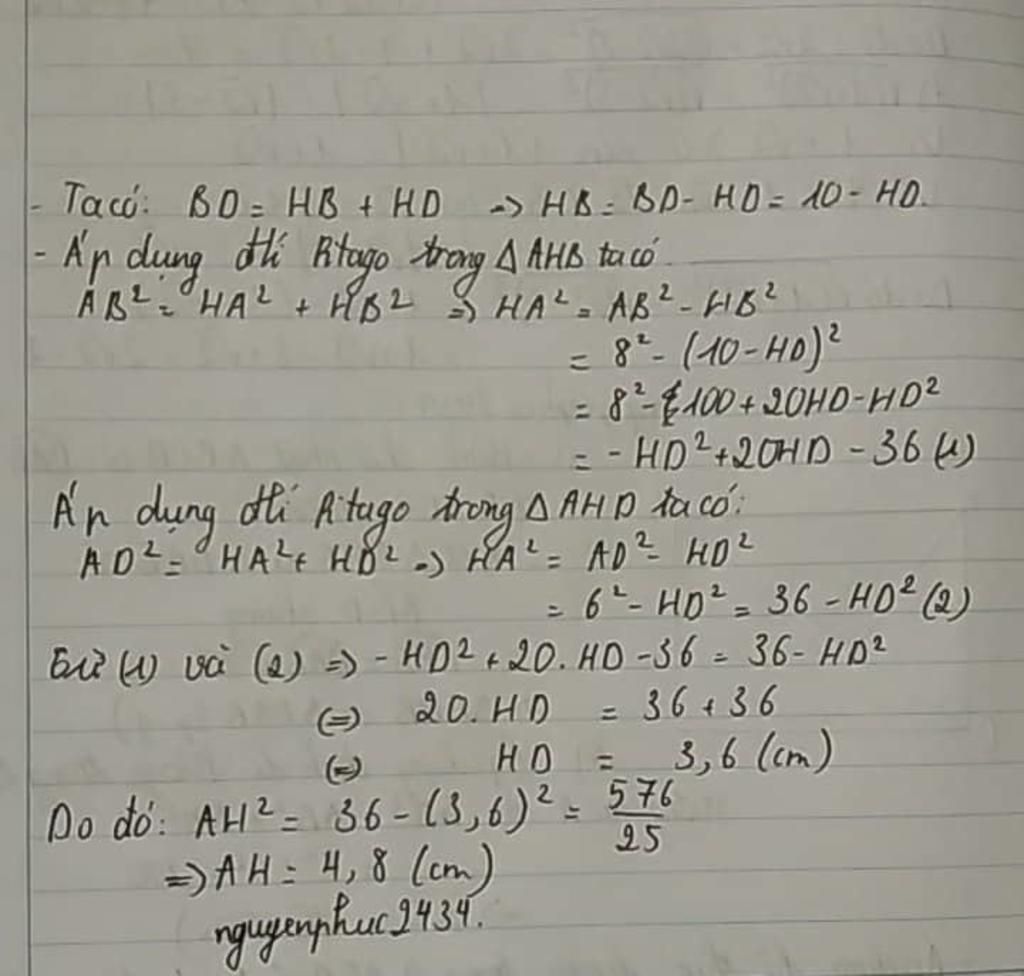 - Ta có: BD = HB + HD => HB = BD - HD = 10 - HD.
- Áp dụng đlí Pitago trong Δ AHB ta có
AB² = HA² + HB² => HA² = AB² - HB²
= 8² - (10 - HD)²
= 8² - 100 + 20HD - HD²
= - HD² + 20HD - 36 (1)
Áp dụng đlí Pitago trong Δ AHD ta có:
AD² = HA² + HD² => HA² = AD² - HD²
= 6² - HD² = 36 - HD² (2)
Từ (1) và (2) => - HD² + 20. HD - 36 = 36 - HD²
(=) 20. HD = 36 + 36
(=) HD = 3,6 (cm)
Do đó: AH² = 36 - (3,6)² = 576/25
=> AH = 4,8 (cm)
nguyenphuc2434.